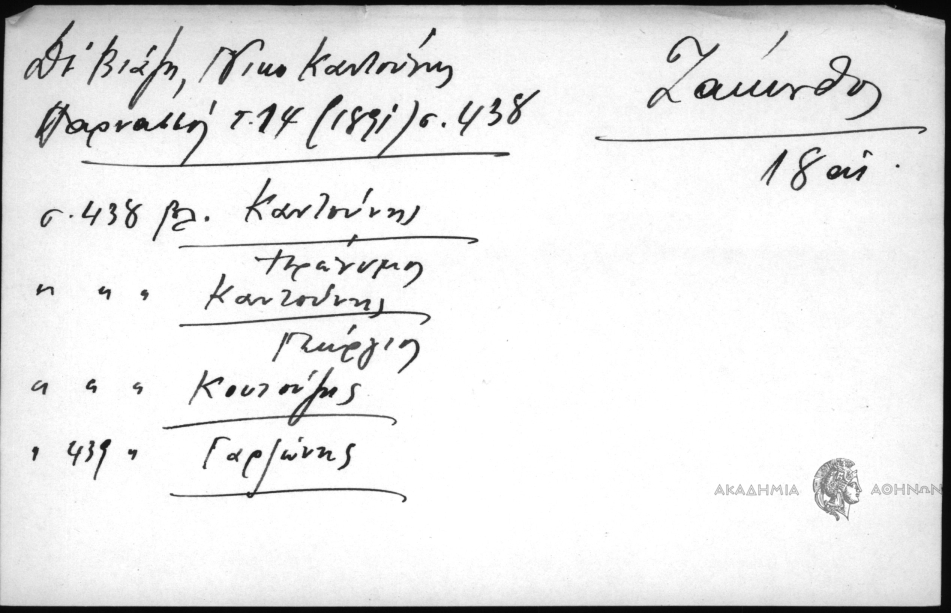 Δι Βιάζη, Νικο Καντούνης
Παρνασσός τ. 14 (1891) σ. 438
Ζάκυνθος
18 αι.
σ. 438 βλ. Καντούνης
Ιερώνυμος
" " " Καντούνης
Γεώργιος
" " " Κουτούζης
" 439 " Γαρζώνης
ΑΚΑΔΗΜΙΑ ΑΘΗΝΩΝ